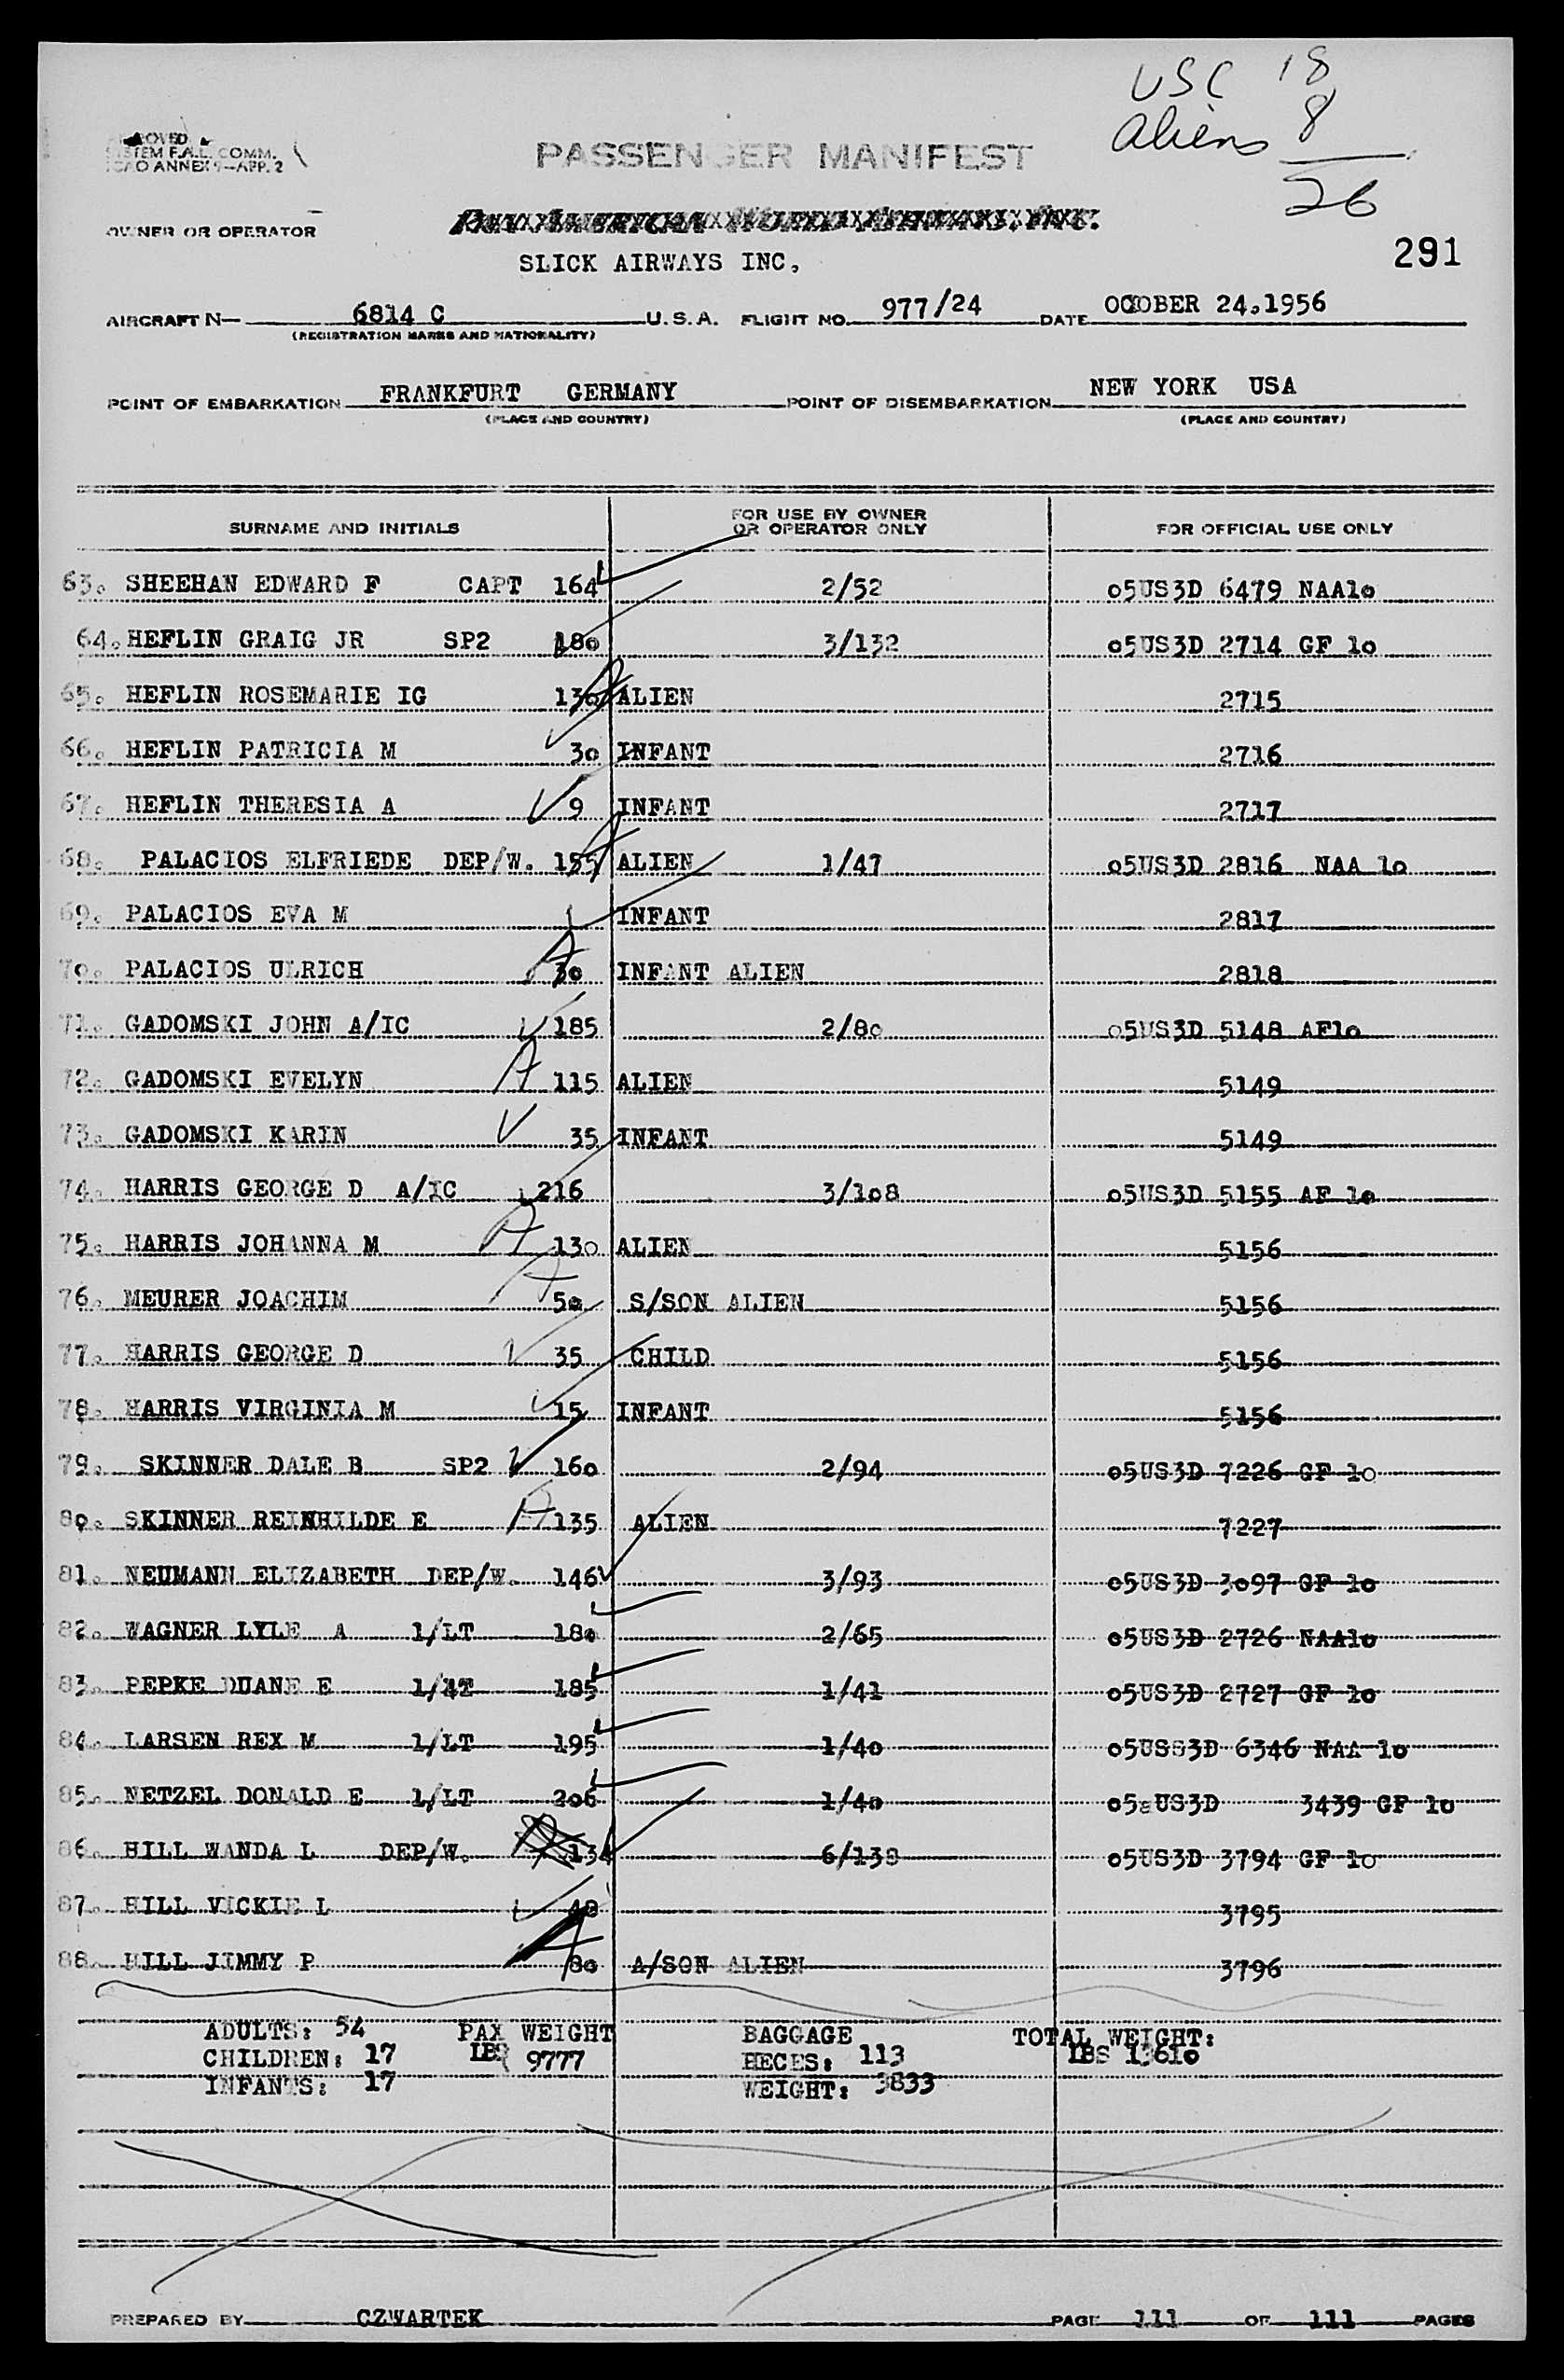 USC 18
aliens 8
26
SYSTEM F.A.L. COMM.
ICAO ANNEX 9—APP. 2
PASSENGER MANIFEST
OWNER OR OPERATOR
SLICK AIRWAYS INC,
291
AIRCRAFT N— 6814 C U.S.A. FLIGHT NO. 977/24 DATE OCOBER 24,1956
(REGISTRATION MARKS AND NATIONALITY)
POINT OF EMBARKATION FRANKFURT GERMANY POINT OF DISEMBARKATION NEW YORK USA
(PLACE AND COUNTRY) (PLACE AND COUNTRY)
SURNAME AND INITIALS FOR USE BY OWNER OR OPERATOR ONLY FOR OFFICIAL USE ONLY
63. SHEEHAN EDWARD F CAPT 164 2/52 o5US3D 6479 NAA1o
64. HEFLIN GRAIG JR SP2 18o 3/132 o5US3D 2714 GF 1o
65. HEFLIN ROSEMARIE IG 13o ALIEN 2715
66. HEFLIN PATRICIA M 3o INFANT 2716
67. HEFLIN THERESIA A 9 INFANT 2717
68. PALACIOS ELFRIEDE DEP/W. 155 ALIEN 1/47 o5US3D 2816 NAA 1o
69. PALACIOS EVA M INFANT 2817
7o. PALACIOS ULRICH 3o INFANT ALIEN 2818
71. GADOMSKI JOHN A/IC 185 2/8o o5US3D 5148 AF1o
72. GADOMSKI EVELYN A 115 ALIEN 5149
73. GADOMSKI KARIN 35 INFANT 5149
74. HARRIS GEORGE D A/IC 216 3/1o8 o5US3D 5155 AF 1o
75. HARRIS JOHANNA M A 13o ALIEN 5156
76. MEURER JOACHIM A 5o S/SON ALIEN 5156
77. HARRIS GEORGE D 35 CHILD 5156
78. HARRIS VIRGINIA M 15 INFANT 5156
79. SKINNER DALE B SP2 16o 2/94 o5US3D 7226 GF 1o
8o. SKINNER REINHILDE E A 135 ALIEN 7227
81. NEUMANN ELIZABETH DEP/W. 146 3/93 o5US3D 3o97 GF 1o
82. WAGNER LYLE A 1/LT 18o 2/65 o5US3D 2726 NAA1o
83. PEPKE DUANE E 1/LT 185 1/41 o5US3D 2727 GF 1o
84. LARSEN REX M 1/LT 195 1/4o o5USS3D 6346 NAA 1o
85. NETZEL DONALD E 1/LT 2o6 1/4o o5aUS3D 3439 GF 1o
86. HILL WANDA L DEP/W. 134 6/138 o5US3D 3794 GF 1o
87. HILL VICKIE L 48 3795
88. HILL JIMMY P 8o A/SON ALIEN 3796
ADULTS: 54 PAX WEIGHT BAGGAGE TOTAL WEIGHT:
CHILDREN: 17 LBS 9777 PIECES: 113 LBS 1361o
INFANTS: 17 WEIGHT: 3833
PREPARED BY CZWARTEK PAGE 111 OF 111 PAGES